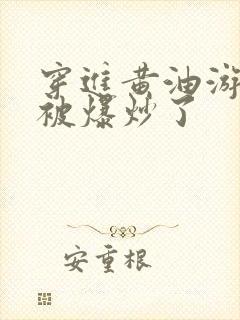 穿进黄油游
被爆炒了
安重根